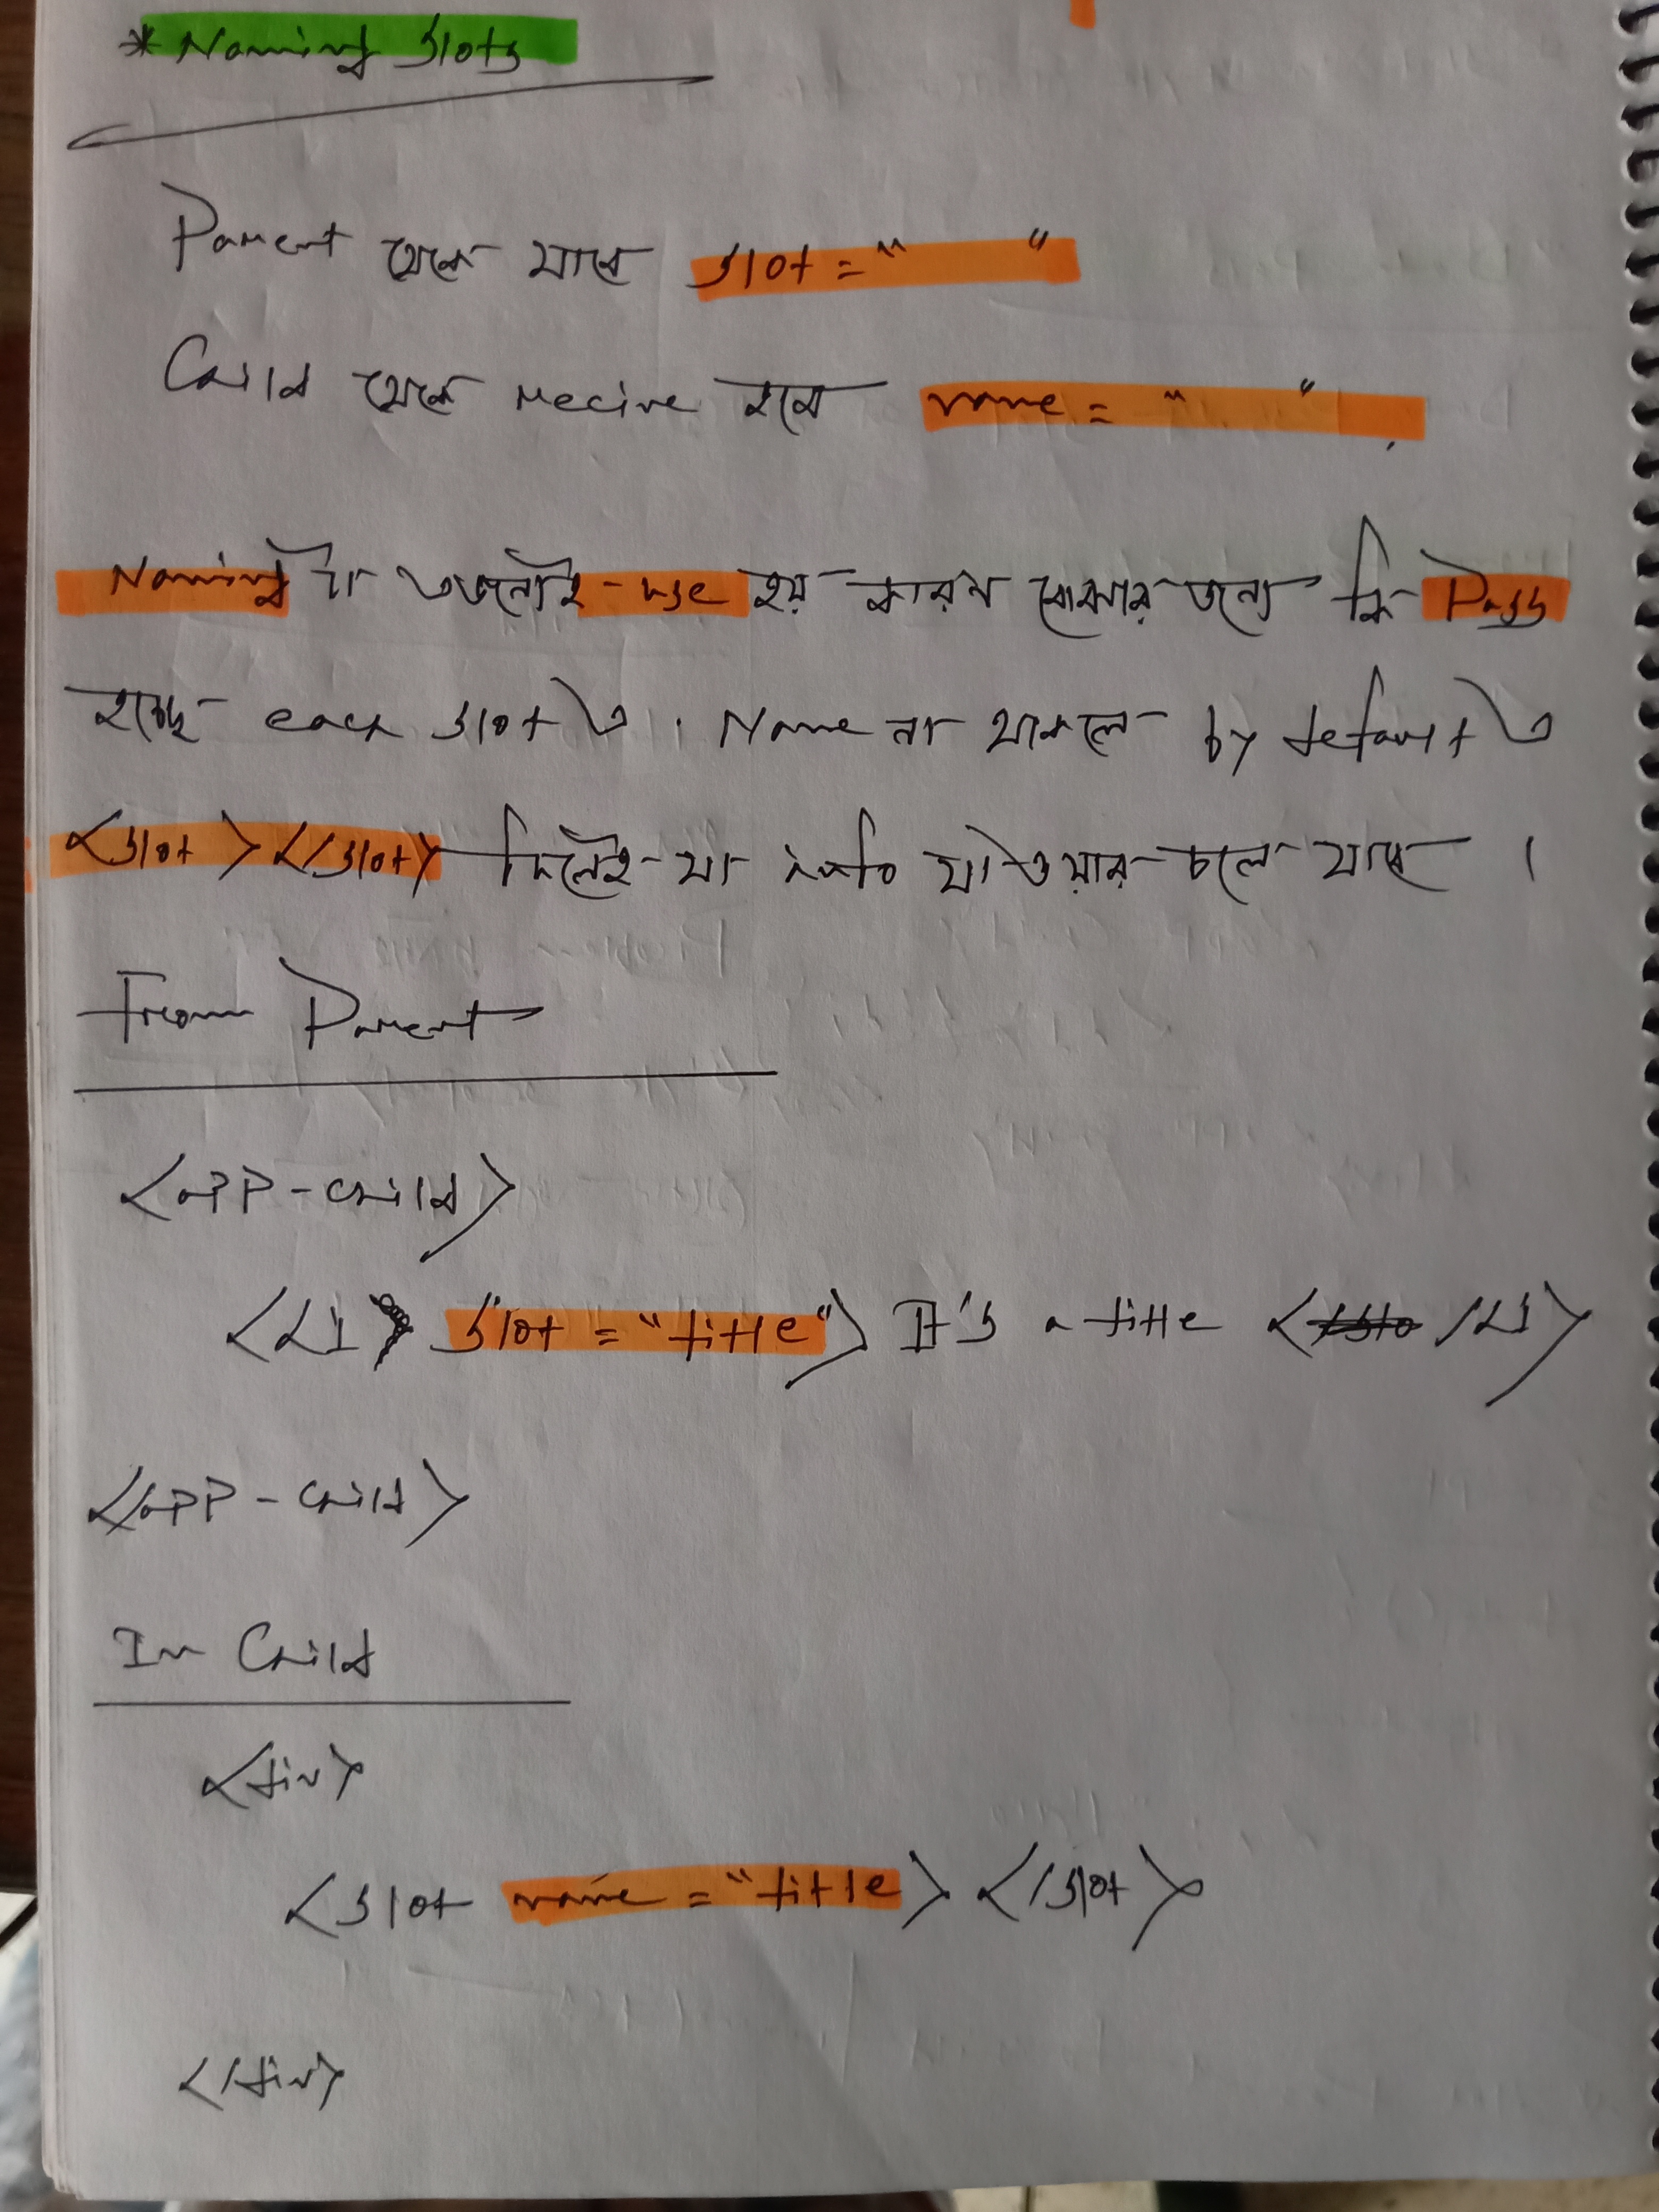 * Naming Slots
Parent থেকে যাবে slot = " "
Child থেকে recive হবে name = " "
Naming টা এজন্যেই use হয় কারণ বোঝার জন্যে কি Pass
হচ্ছে each slot এ. Name না থাকলে by default এ
<slot></slot> দিলেই যা info যাওয়ার চলে যাবে ।
From Parent
<app-child>
<L1 slot = "title"> It's a title </L1>
</app-child>
In Child
<div>
<slot name = "title> </slot>
</div>